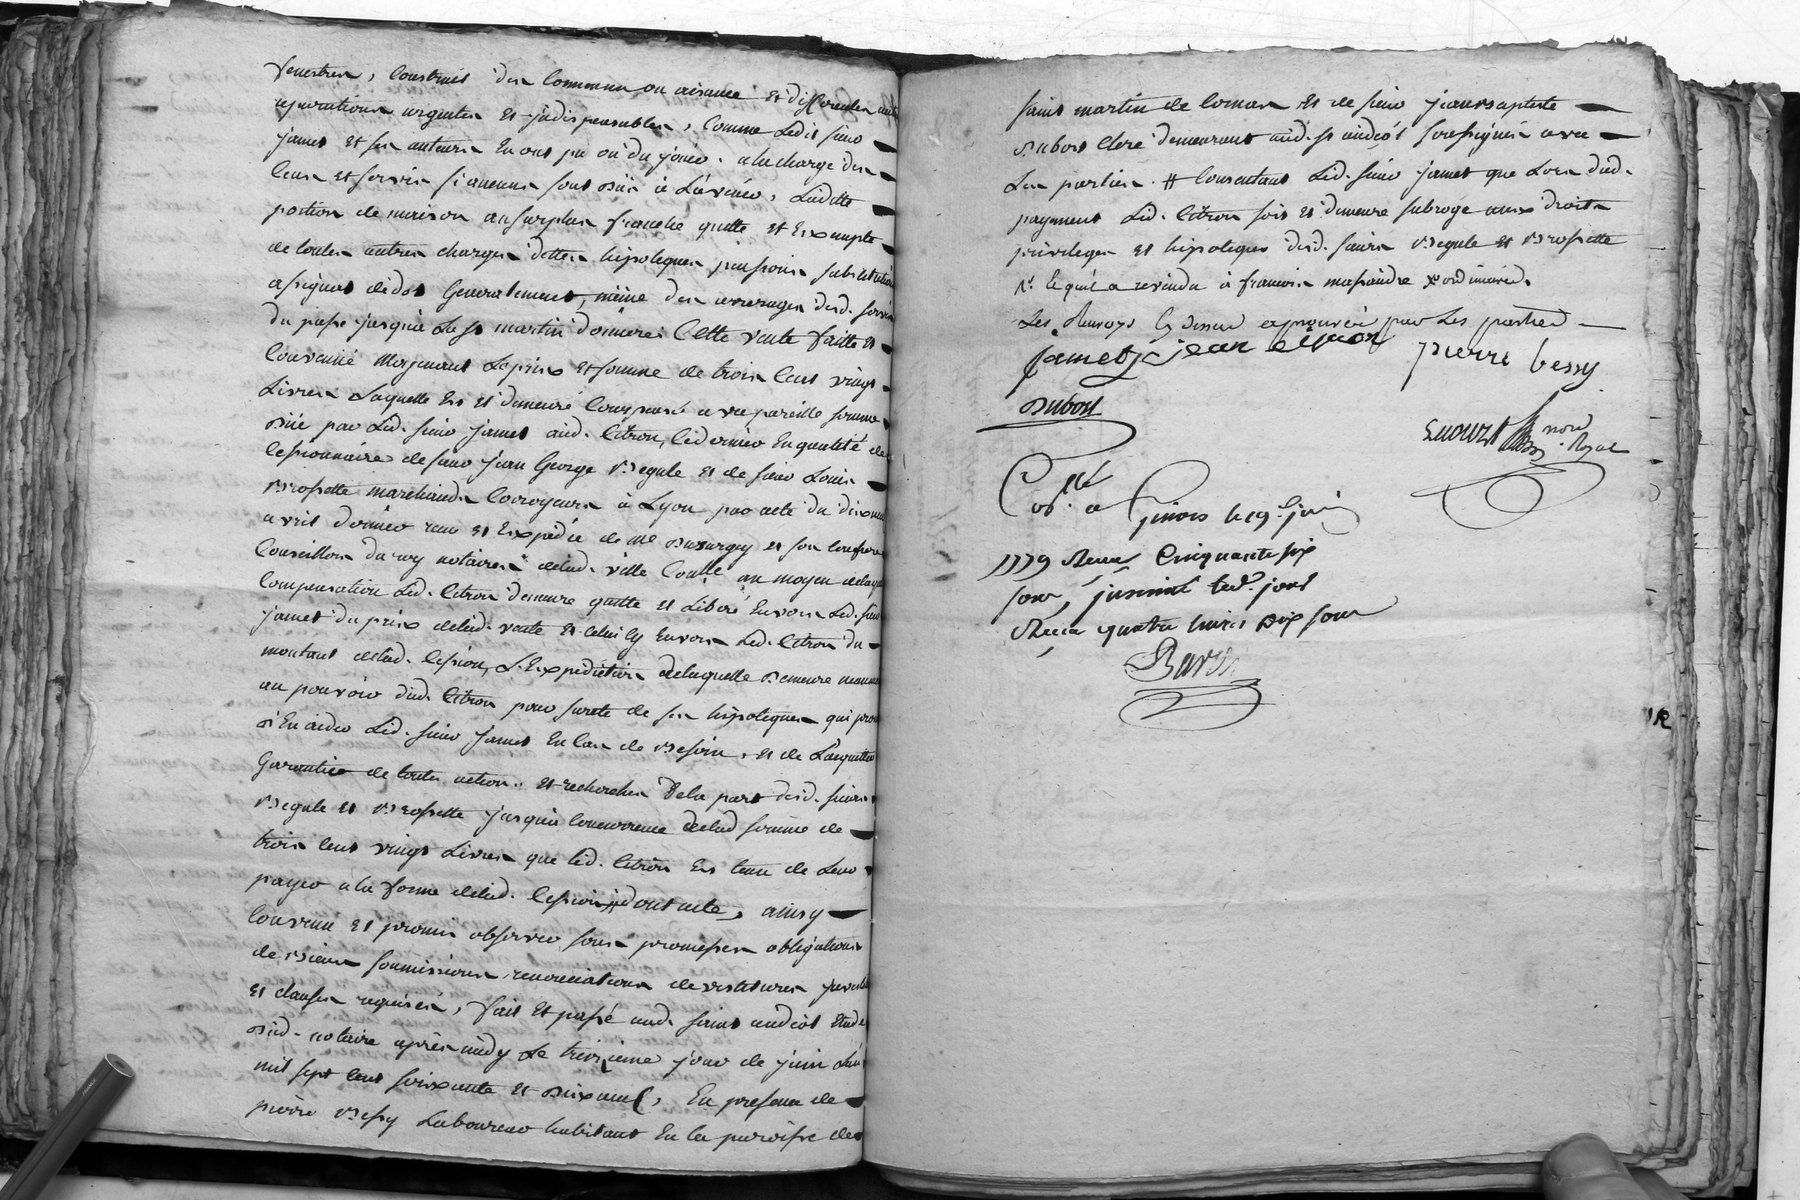 fenestres, Construit des Commun ou aisance et differentes autres
reparations urgentes et jndispensables, Comme Ledit sieur
jamet et ses auteurs En ont pu ou du jouir. a la charge des
Cens et servis si aucuns sont dûs à L'avenir, Ladette
portion de maison au surplus franche quitte et Exempte
de toutes autres charges dettes hipoteques pensions substitutions
assignat de dot Generalement, même des arrerages desd. servis
du passé jusqu'à La st martin derniere; Cette vente faitte et
Convenüe Moyenant Le prix et somme de trois Cent vingt
Livres Laquelle Est et demeure Compensée avec pareille somme
düe par Led. sieur jamet aud. Citron, Ce dernier En qualité de
Cessionnaire de sieur jean George Begule et de sieur Louis
Brossette marchands Corroyeurs à Lyon par acte du dix neuf
avril dernier reçu et Expedié de Me Durnrgey et son Confrere
Conseillers du roy notaires a lad. ville Coutte au moyen delaquelle
Compensation Led. Citron demeure quitte et Liberé Envers Led. sieur
jamet du prix delad. vente et Celui cy Envers Led. Citron du
montant delad. Cession, L'Expedition delaquelle demeure
au pouvoir dud. Citron pour sureté de ses hipoteques qui promet
d'En aider Led. sieur jamet En Cas de Besoin, et de L'acquitter
Garentir de toutes actions et recherches De la part desd. sieurs
Begule et Brossette jusqu'à Concurrence delad somme de
trois Cent vingt Livres que led. Citron Est tenu de Leur
payer a la forme delad. Cession # dont acte, ainsy
Convenu et promis observer sous promesses obligations
de Biens soumissions, renonciations devestitures
et clauses requises, fait et passé aud. saint andéol Etude
dud. notaire après midy Le treizieme jour de juin L'an
mil sept Cent soixante et dixneuf, En presence de
pierre Bessy Laboureur habitant En la paroisse de
saint martin de Cornas et de sieur jean baptiste
Dubost Clerc demeurant aud. st andéol soussignés avec
Les parties. # Consentant Led. sieur jamet que Lors dud.
payement Led. Citron soit et demeure subrogé aux droits
privileges et hipoteques desd. sieurs Begule et Brossette
Les Renvoys Cy Dessus approuvés par Les parties
Jamet jean citron pierre bessy
Dubost
not. Royal
Collé a Givors le 19 juin
1779 Recu Cinquante six
sous, jnsinué led. jour
Recu quatre livres dix sous